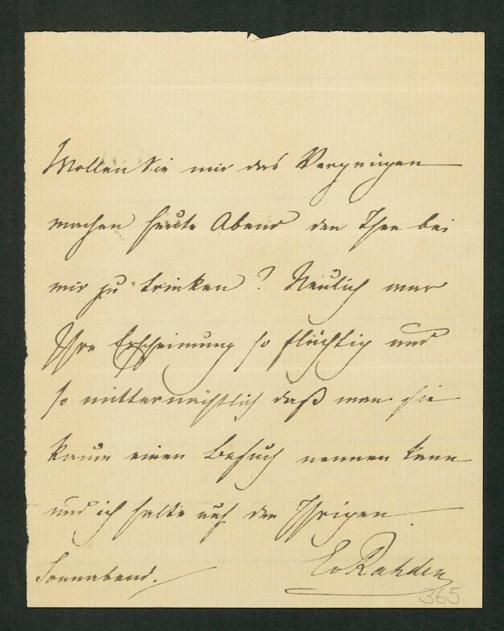 Wollen Sie mir das Vergnügen
machen heute Abend den Thee bei
mir zu trinken? Neulich war
Ihre Erscheinung so flüchtig und
so mitternächtlich daß man sie
kaum einen Besuch nennen kann
und ich halte auf den Ihrigen.
Sonnabend. EvRahden
365